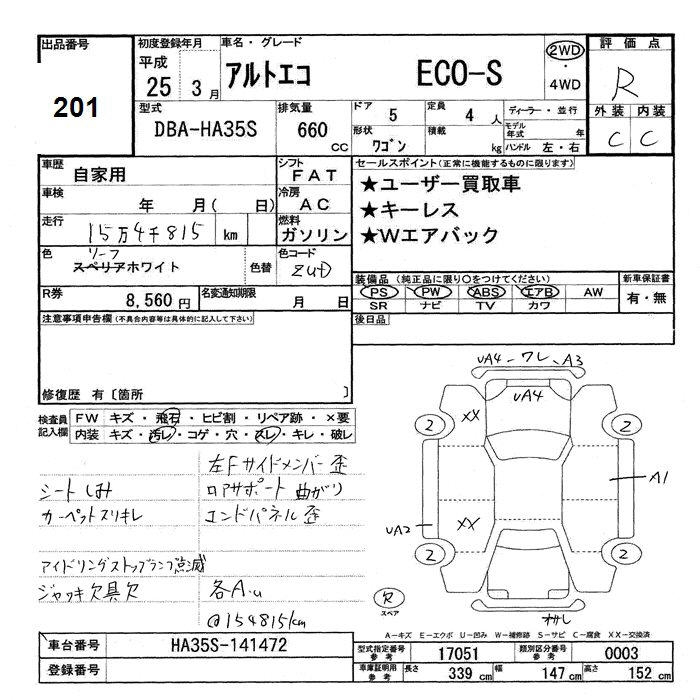 出品番号
201
初度登録年月
平成
25 3月
車名・グレード
アルトエコ ECO-S
2WD
・
4WD
評価点
R
型式
DBA-HA35S
排気量
660 CC
ドア 5
定員 4 人
形状 ワゴン
積載 kg
ディーラー・並行
モデル年式 年
ハンドル 左・右
外装 内装
C C
車歴
自家用
シフト
FAT
車検
年 月( 日)
冷房
AC
走行
15万4千815 km
燃料
ガソリン
色
リーフ
スペリアホワイト
色替
色コード
ZUD
R券
8,560円
名変通知期限
月 日
セールスポイント(正常に機能するものに限ります)
★ユーザー買取車
★キーレス
★Wエアバック
装備品 (純正品に限り○をつけてください)
PS PW ABS エアB AW
SR ナビ TV カワ
新車保証書
有・無
後日品
注意事項申告欄(不具合内容等は具体的に記入して下さい)
修復歴 有〔箇所 〕
検査員
記入欄
FW キズ・飛石・ヒビ割・リペア跡・×要
内装 キズ・汚レ・コゲ・穴・スレ・キレ・破レ
左Fサイドメンバー歪
シートしみ
ロアサポート曲がり
カーペットスリキレ
エンドパネル歪
アイドリングストップランプ点滅
ジャッキ欠具欠
各A.u
@154815km
UA4-ワレ、A3
UA4
XX
2 2
A1
UA2
XX
2 2
欠
スペア
オサレ
A-キズ E-エクボ U-凹み W-補修跡 S-サビ C-腐食 XX-交換済
車台番号
HA35S-141472
登録番号
型式指定番号
参考
17051
類別区分番号
参考
0003
車庫証明用
参考
長さ 339 cm
幅 147 cm
高さ 152 cm